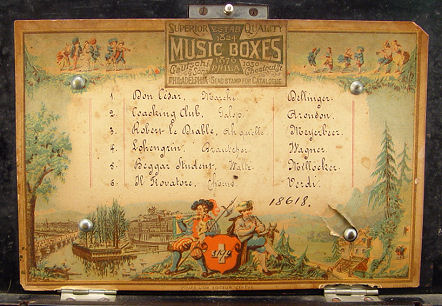 SUPERIOR ESTAB. QUALITY
1824
MUSIC BOXES
Gautschi 1030
& Sons Chestnut St.
PHILADELPHIA SEND STAMP FOR CATALOGUE
1. Don César, Marche Dellinger.
2. Coaching Club, Galop. Aronson.
3. Robert le Diable, Meyerbeer.
4. Lohengrin, Wagner.
5. Beggar Student, Waltz Millöcker.
6. Il Trovatore, Verdi.
18618.